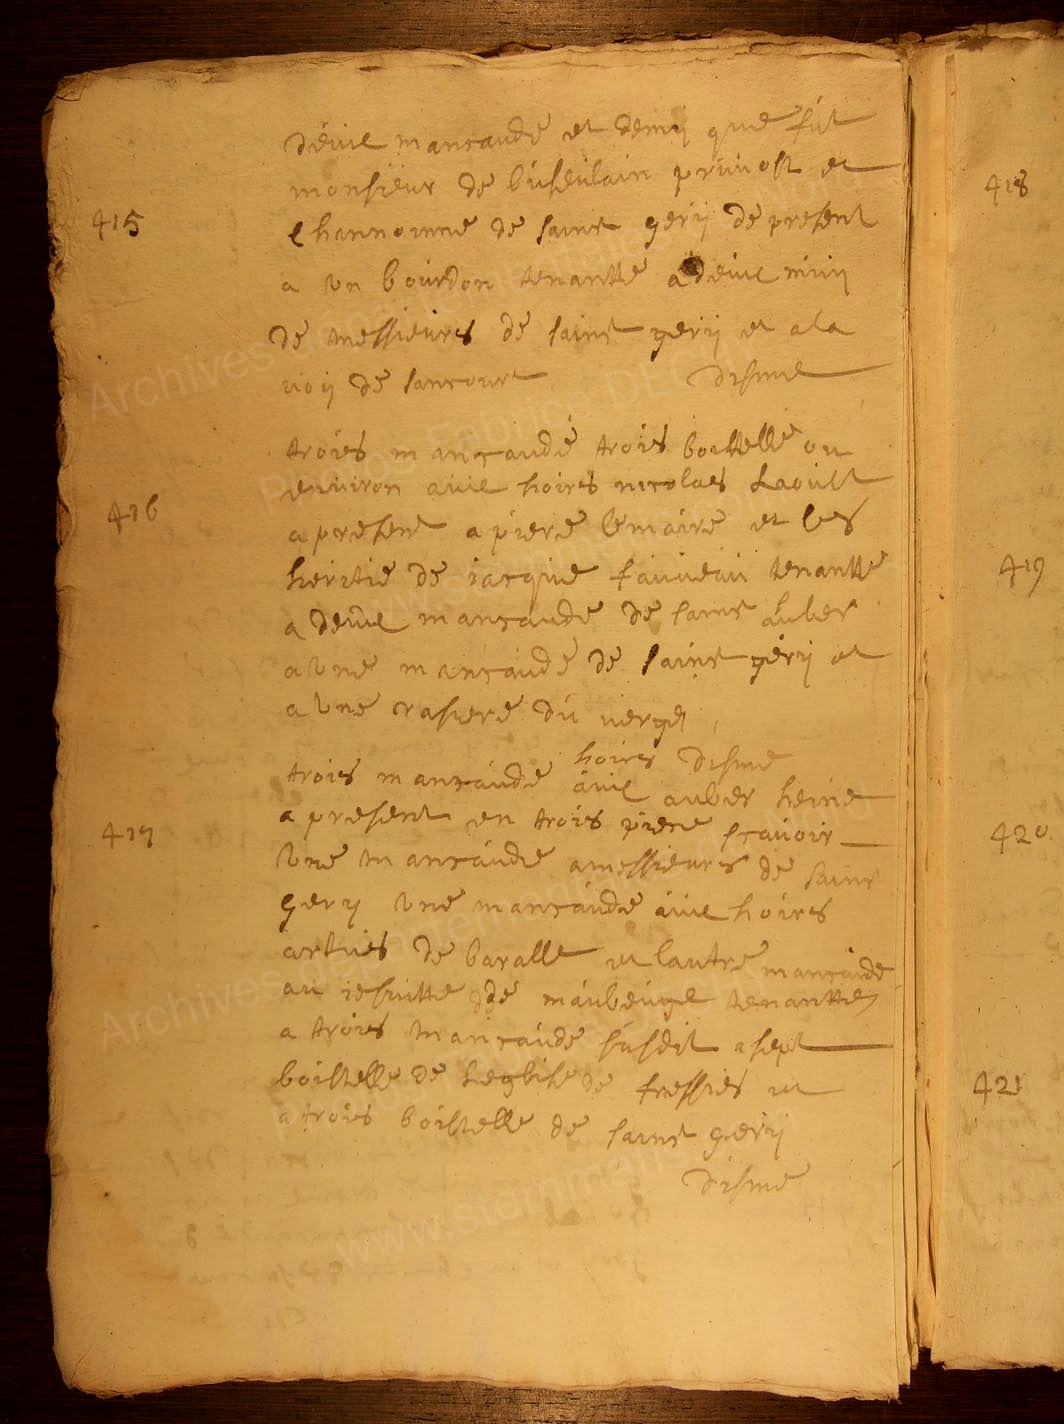 deiue mancaude et demy que fut
monsieur de buseulain pruuost et
415
channoinne de sainct gery de present
a un bourdon tenantte a deiue muy
de messieurs de sainct gery et a la
uoy de sancourt disme
troies mancaude trois boittelle ou
enuiron auie hoires nicolaes Laoust
416
a present a piere lemaire et les
heirtie de iacque fauueau tenantte
a deiue mancaude de sainct auber
a une mancaude de sainct gery et
a une rasiere du uerge
trois mancaude hoires disme
auie auber heine
417
a present en trois piece scauoir
une mancaude a messieurs de sainct
gery une mancaude auie hoires
artues de baralle et lautre mancaude
au iesuitte de maubeuge tenantte
a trois mancaude susdit a sept
boistelle de Leglise de fressies et
a trois boistelle de sainct gery
disme
418
419
420
421
Archives départementales
Photo Fabrice DEC
www.stemmetis